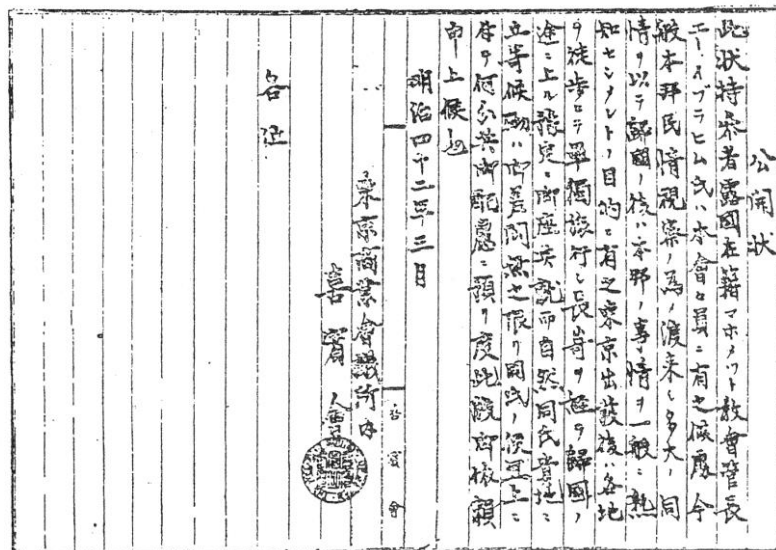 公開状
此状持参者露國在籍マホメット教會管長
エーイブラヒム氏ハ本會々員ニ有之候處今
般本邦民情視察ノ為ノ渡来シ多大ノ同
情ヲ以テ歸國ノ後ハ本邦ノ事情ヲ一般ニ熟
知センメントノ目的ニ有之東京出發後ハ各地
ヲ徒歩ニテ單獨旅行シ長崎ヲ經テ歸國ノ
途ニ上ル豫定ニ御座候就而自然同氏貴地ニ
立寄候節ハ御差閊無之限リ同氏ノ便宜上ニ
存ヲ何分共御配慮ニ預リ度此段御依頼
申上候也
明治四十二年三月
東京商業會議所内
喜賓會
各位
喜賓會